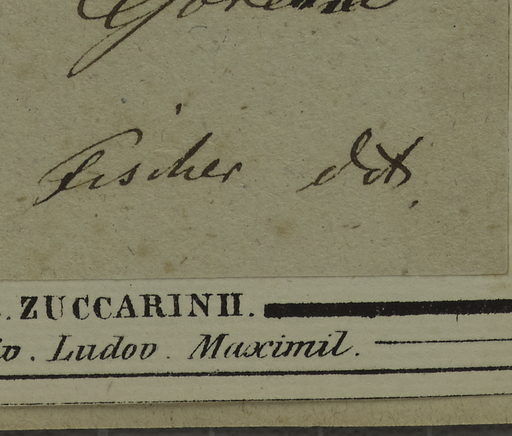 Fischer dt.
. ZUCCARINII.
iv. Ludov. Maximil.